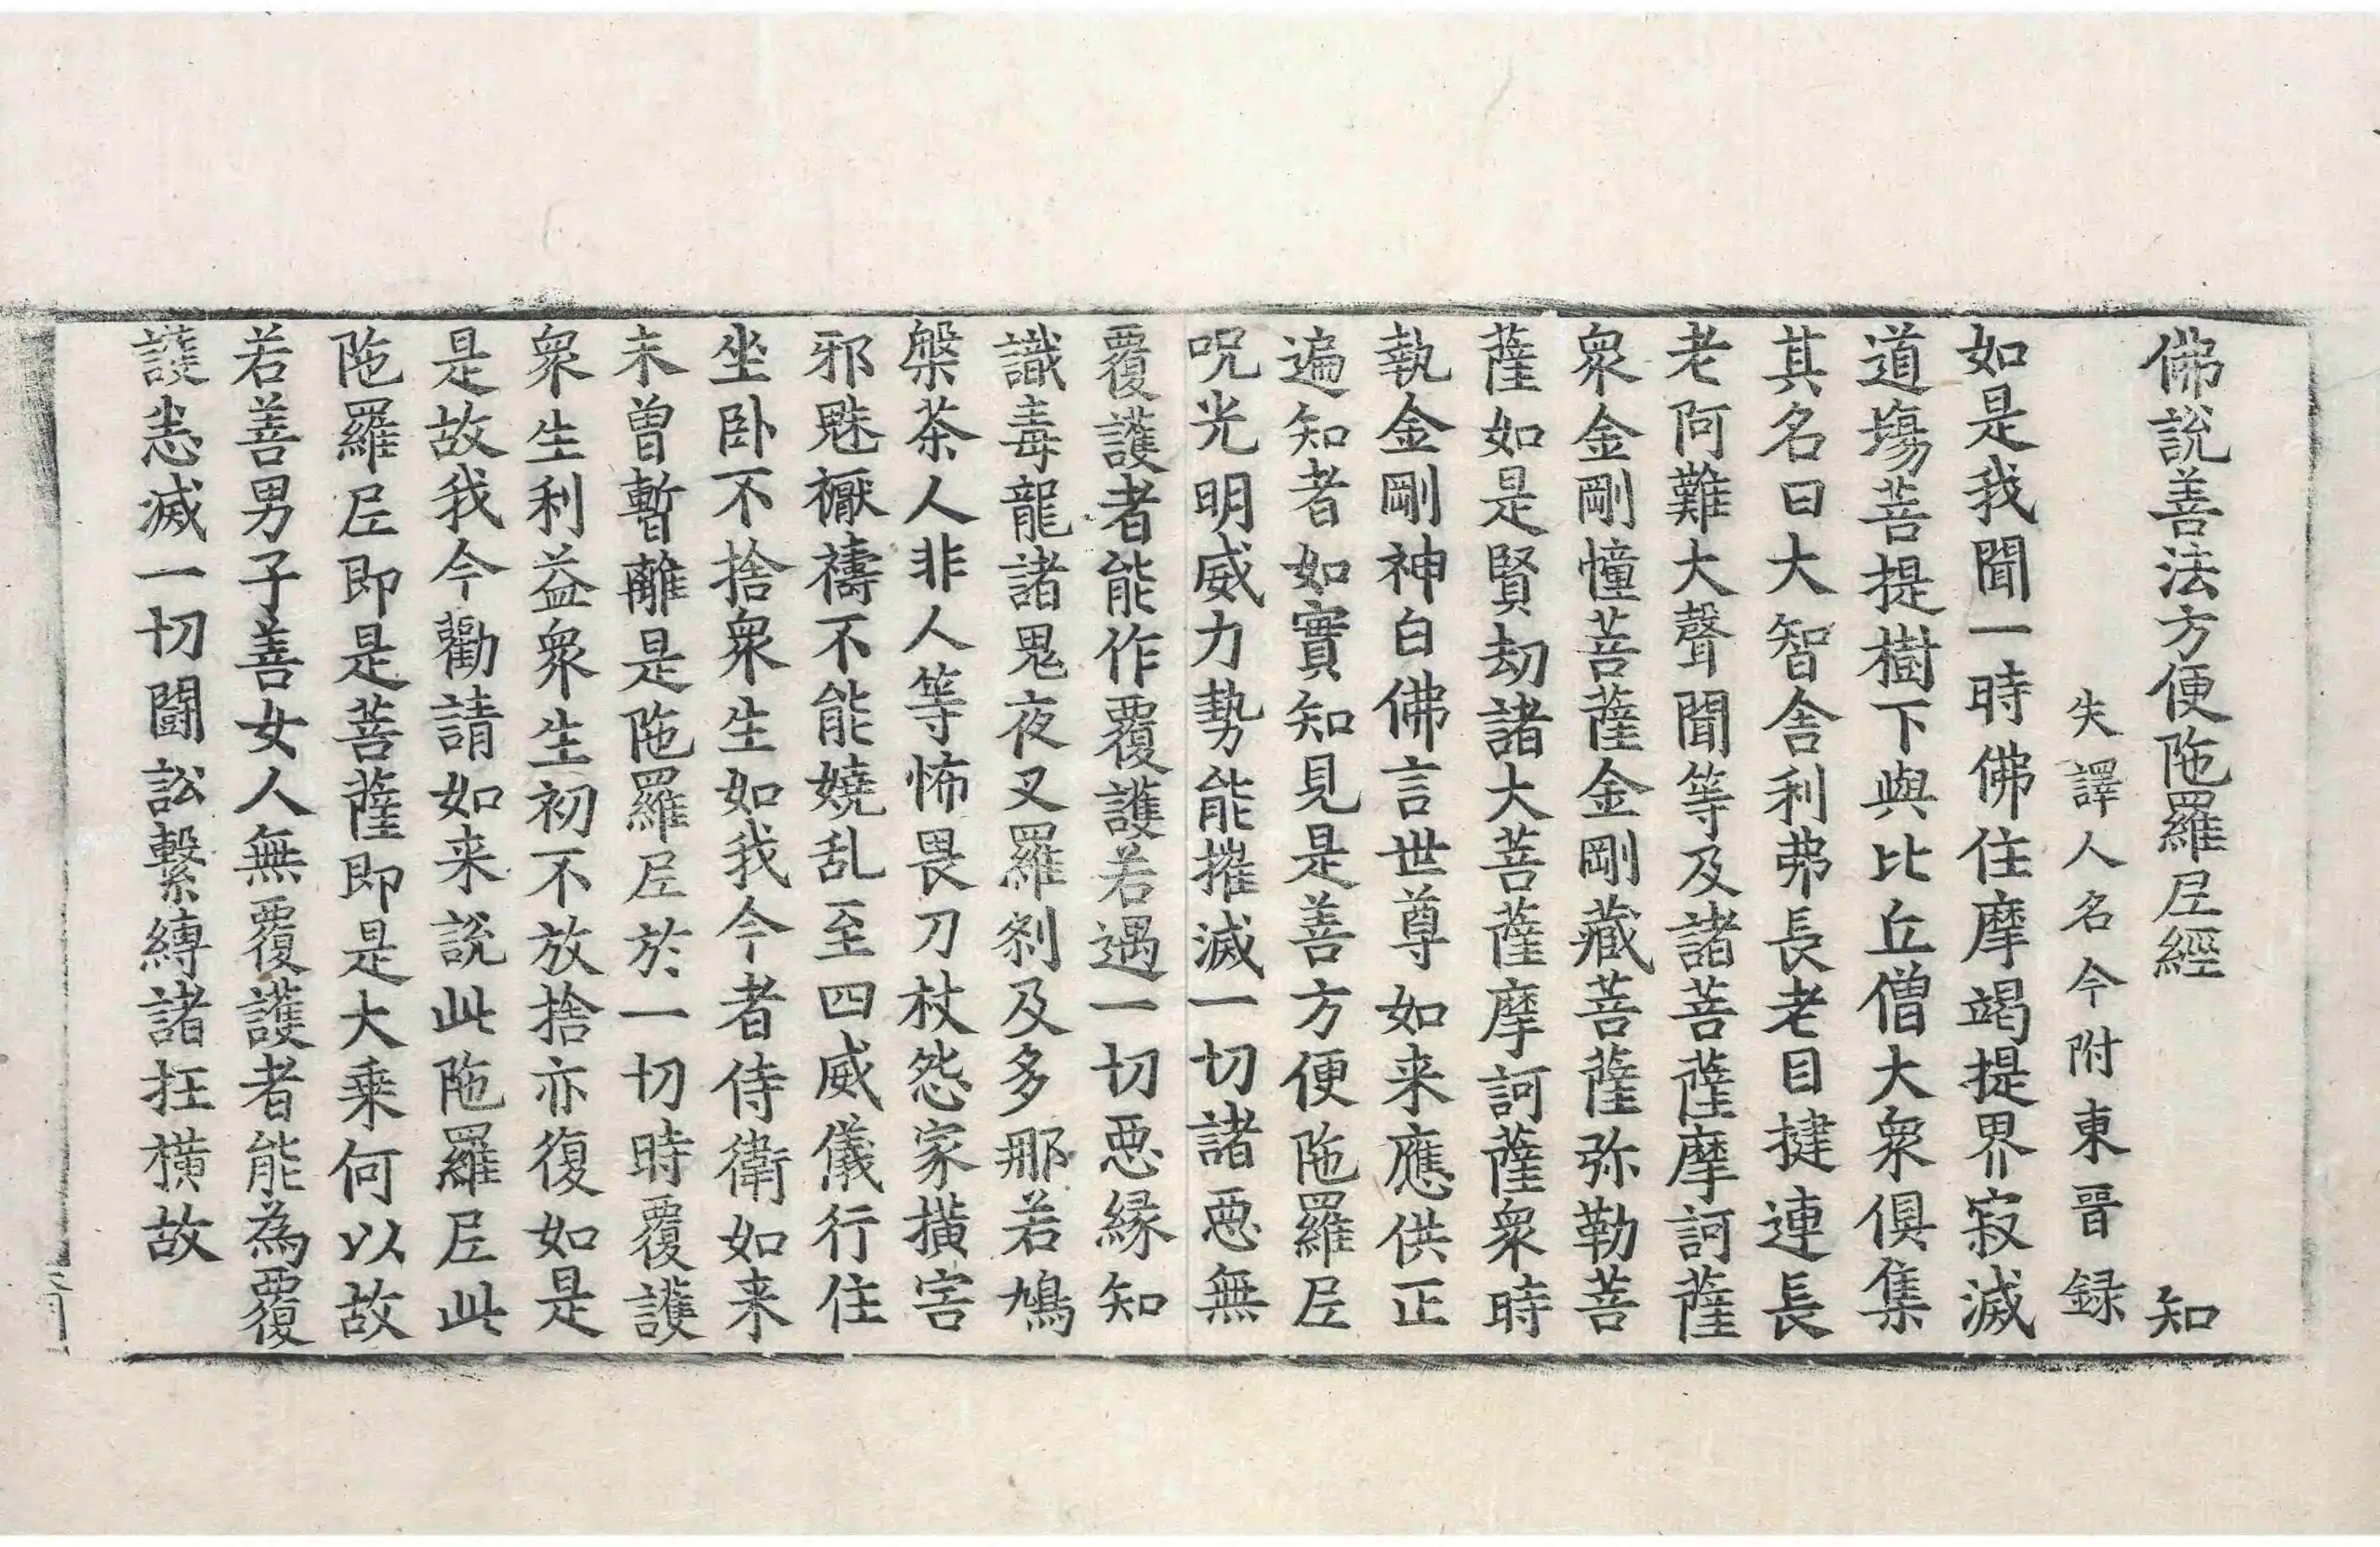 佛說善法方便陁羅尼經 知
失譯人名今附東晉錄
如是我聞一時佛住摩竭提界寂滅
道場菩提樹下與比丘僧大衆俱集
其名曰大智舍利弗長老目揵連長
老阿難大聲聞等及諸菩薩摩訶薩
衆金剛幢菩薩金剛藏菩薩弥勒菩
薩如是賢劫諸大菩薩摩訶薩衆時
執金剛神白佛言世尊如来應供正
遍知者如實知見是善方便陁羅尼
呪光明威力勢能摧滅一切諸惡無
覆護者能作覆護若遇一切惡緣知
識毒龍諸鬼夜叉羅剎及多那若鳩
槃茶人非人等怖畏刀杖怨家撗害
邪魅禰禱不能嬈乱至四威儀行住
坐卧不捨衆生如我今者侍衛如来
未曾暫離是陁羅尼於一切時覆護
衆生利益衆生初不放捨亦復如是
是故我今勸請如来說此陁羅尼此
陁羅尼即是菩薩即是大乗何以故
若善男子善女人無覆護者能為覆
護恙滅一切鬪訟繫縛諸抂撗故